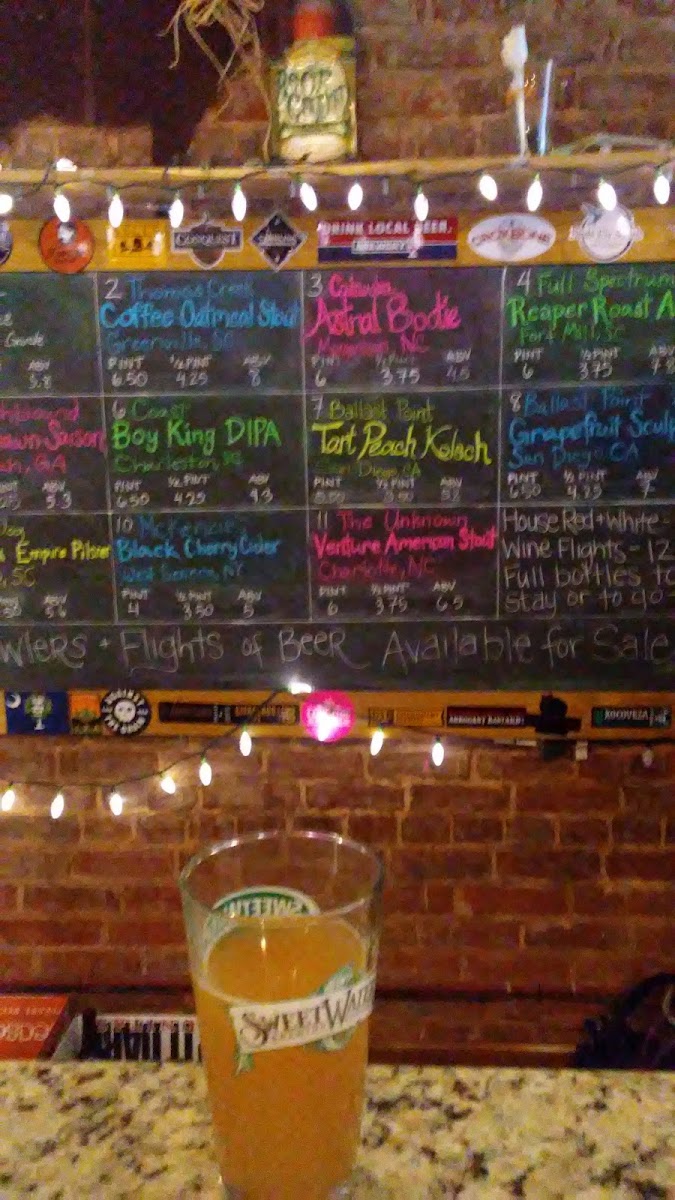 HOP GOBLIN
CONQUEST
DRINK LOCAL BEER.
2 Thomas Creek
Coffee Oatmeal Stout
Greenville, SC
PINT ½ PINT ABV
6.50 4.25 8
3 Catawba
Astral Bodie
Morganton, NC
PINT ½ PINT ABV
6 3.75 4.5
4 Full Spectrum
Reaper Roast A
Fort Mill, SC
PINT ½ PINT ABV
6 3.75 7.8
ABV
5.8
Saison
GA
½ PINT ABV
5.3
6 Coast
Boy King DIPA
Charleston, SC
PINT ½ PINT ABV
6.50 4.25 9.3
7 Ballast Point
Tart Peach Kolsch
San Diego, CA
PINT ½ PINT ABV
8 Ballast Point
Grapefruit Sculp
San Diego CA
PINT ½ PINT ABV
6.50 4.25 7
Empire Pilsner
SC
½ PINT ABV
5.6
10 McKenzie's
Black Cherry Cider
West Seneca, NY
PINT ½ PINT ABV
4 3.50 5
11 The Unknown
Venture American Stout
Charlotte, NC
PINT ½ PINT ABV
6 3.75 6.5
House Red + White -
Wine Flights - 12
Full bottles to
Stay or to go -
wlers + Flights of Beer Available for Sale
ROCOVEZA
SWEETWATER